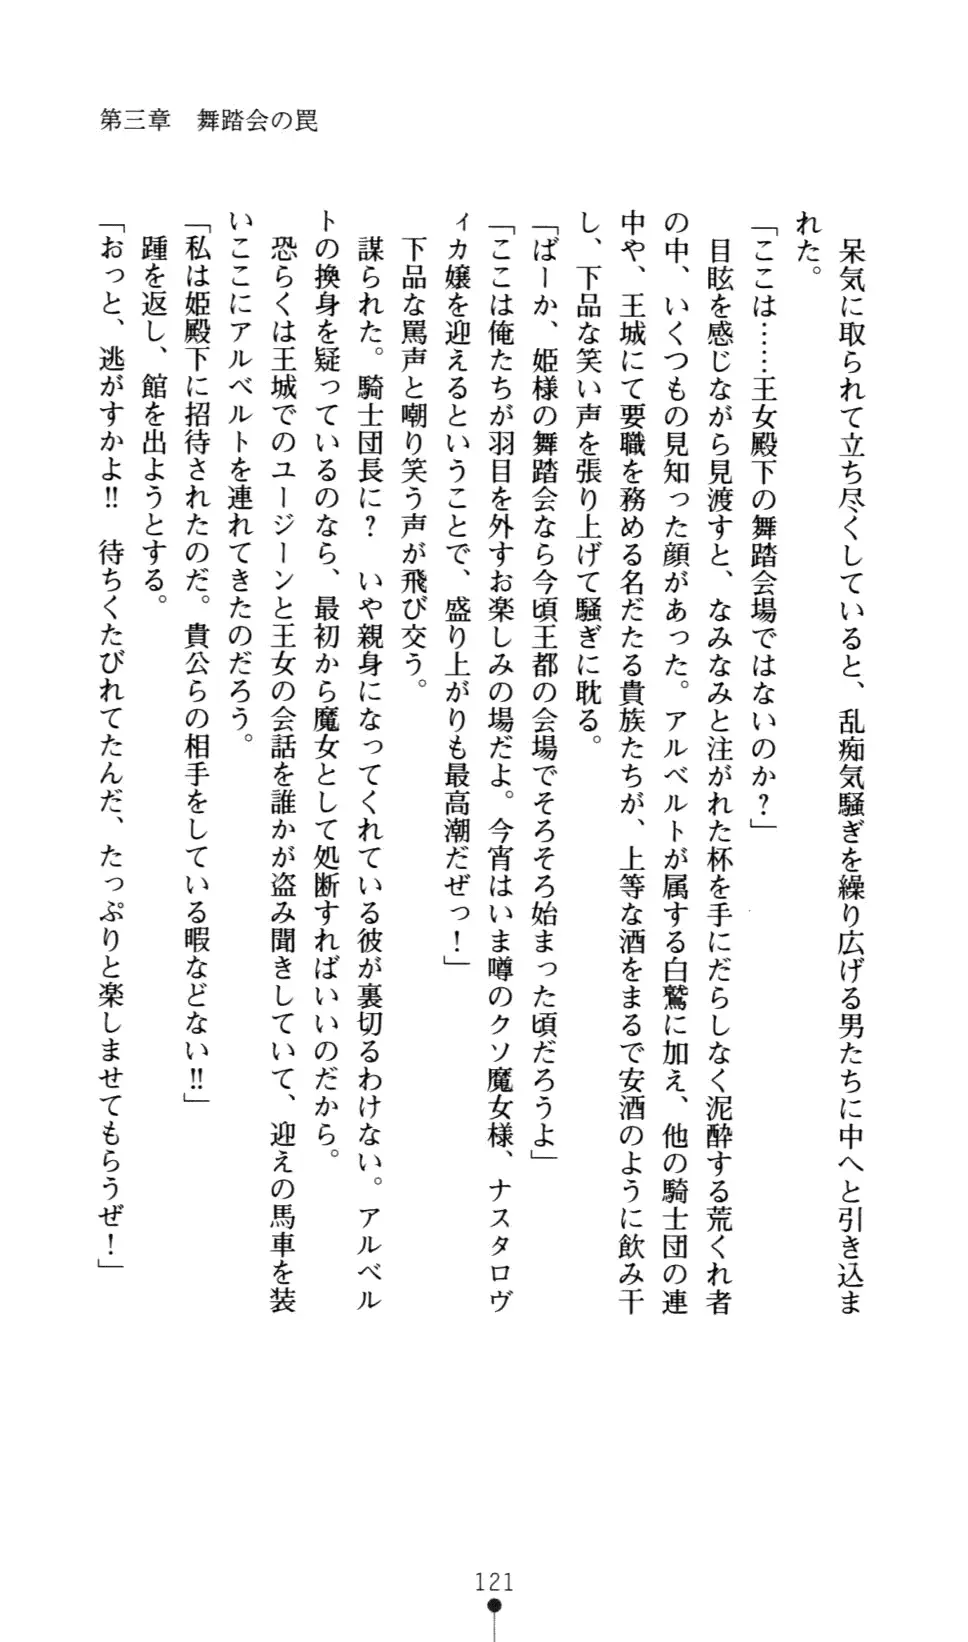 第三章　舞踏会の罠
　呆気に取られて立ち尽くしていると、乱痴気騒ぎを繰り広げる男たちに中へと引き込ま
れた。
「ここは……王女殿下の舞踏会場ではないのか？」
　目眩を感じながら見渡すと、なみなみと注がれた杯を手にだらしなく泥酔する荒くれ者
の中、いくつもの見知った顔があった。アルベルトが属する白鷲に加え、他の騎士団の連
中や、王城にて要職を務める名だたる貴族たちが、上等な酒をまるで安酒のように飲み干
し、下品な笑い声を張り上げて騒ぎに耽る。
「ばーか、姫様の舞踏会なら今頃王都の会場でそろそろ始まった頃だろうよ」
「ここは俺たちが羽目を外すお楽しみの場だよ。今宵はいま噂のクソ魔女様、ナスタロヴ
ィカ嬢を迎えるということで、盛り上がりも最高潮だぜっ！」
　下品な罵声と嘲り笑う声が飛び交う。
　謀られた。騎士団長に？　いや親身になってくれている彼が裏切るわけない。アルベル
トの換身を疑っているのなら、最初から魔女として処断すればいいのだから。
　恐らくは王城でのユージーンと王女の会話を誰かが盗み聞きしていて、迎えの馬車を装
いここにアルベルトを連れてきたのだろう。
「私は姫殿下に招待されたのだ。貴公らの相手をしている暇などない‼」
　踵を返し、館を出ようとする。
「おっと、逃がすかよ‼　待ちくたびれてたんだ、たっぷりと楽しませてもらうぜ！」
121